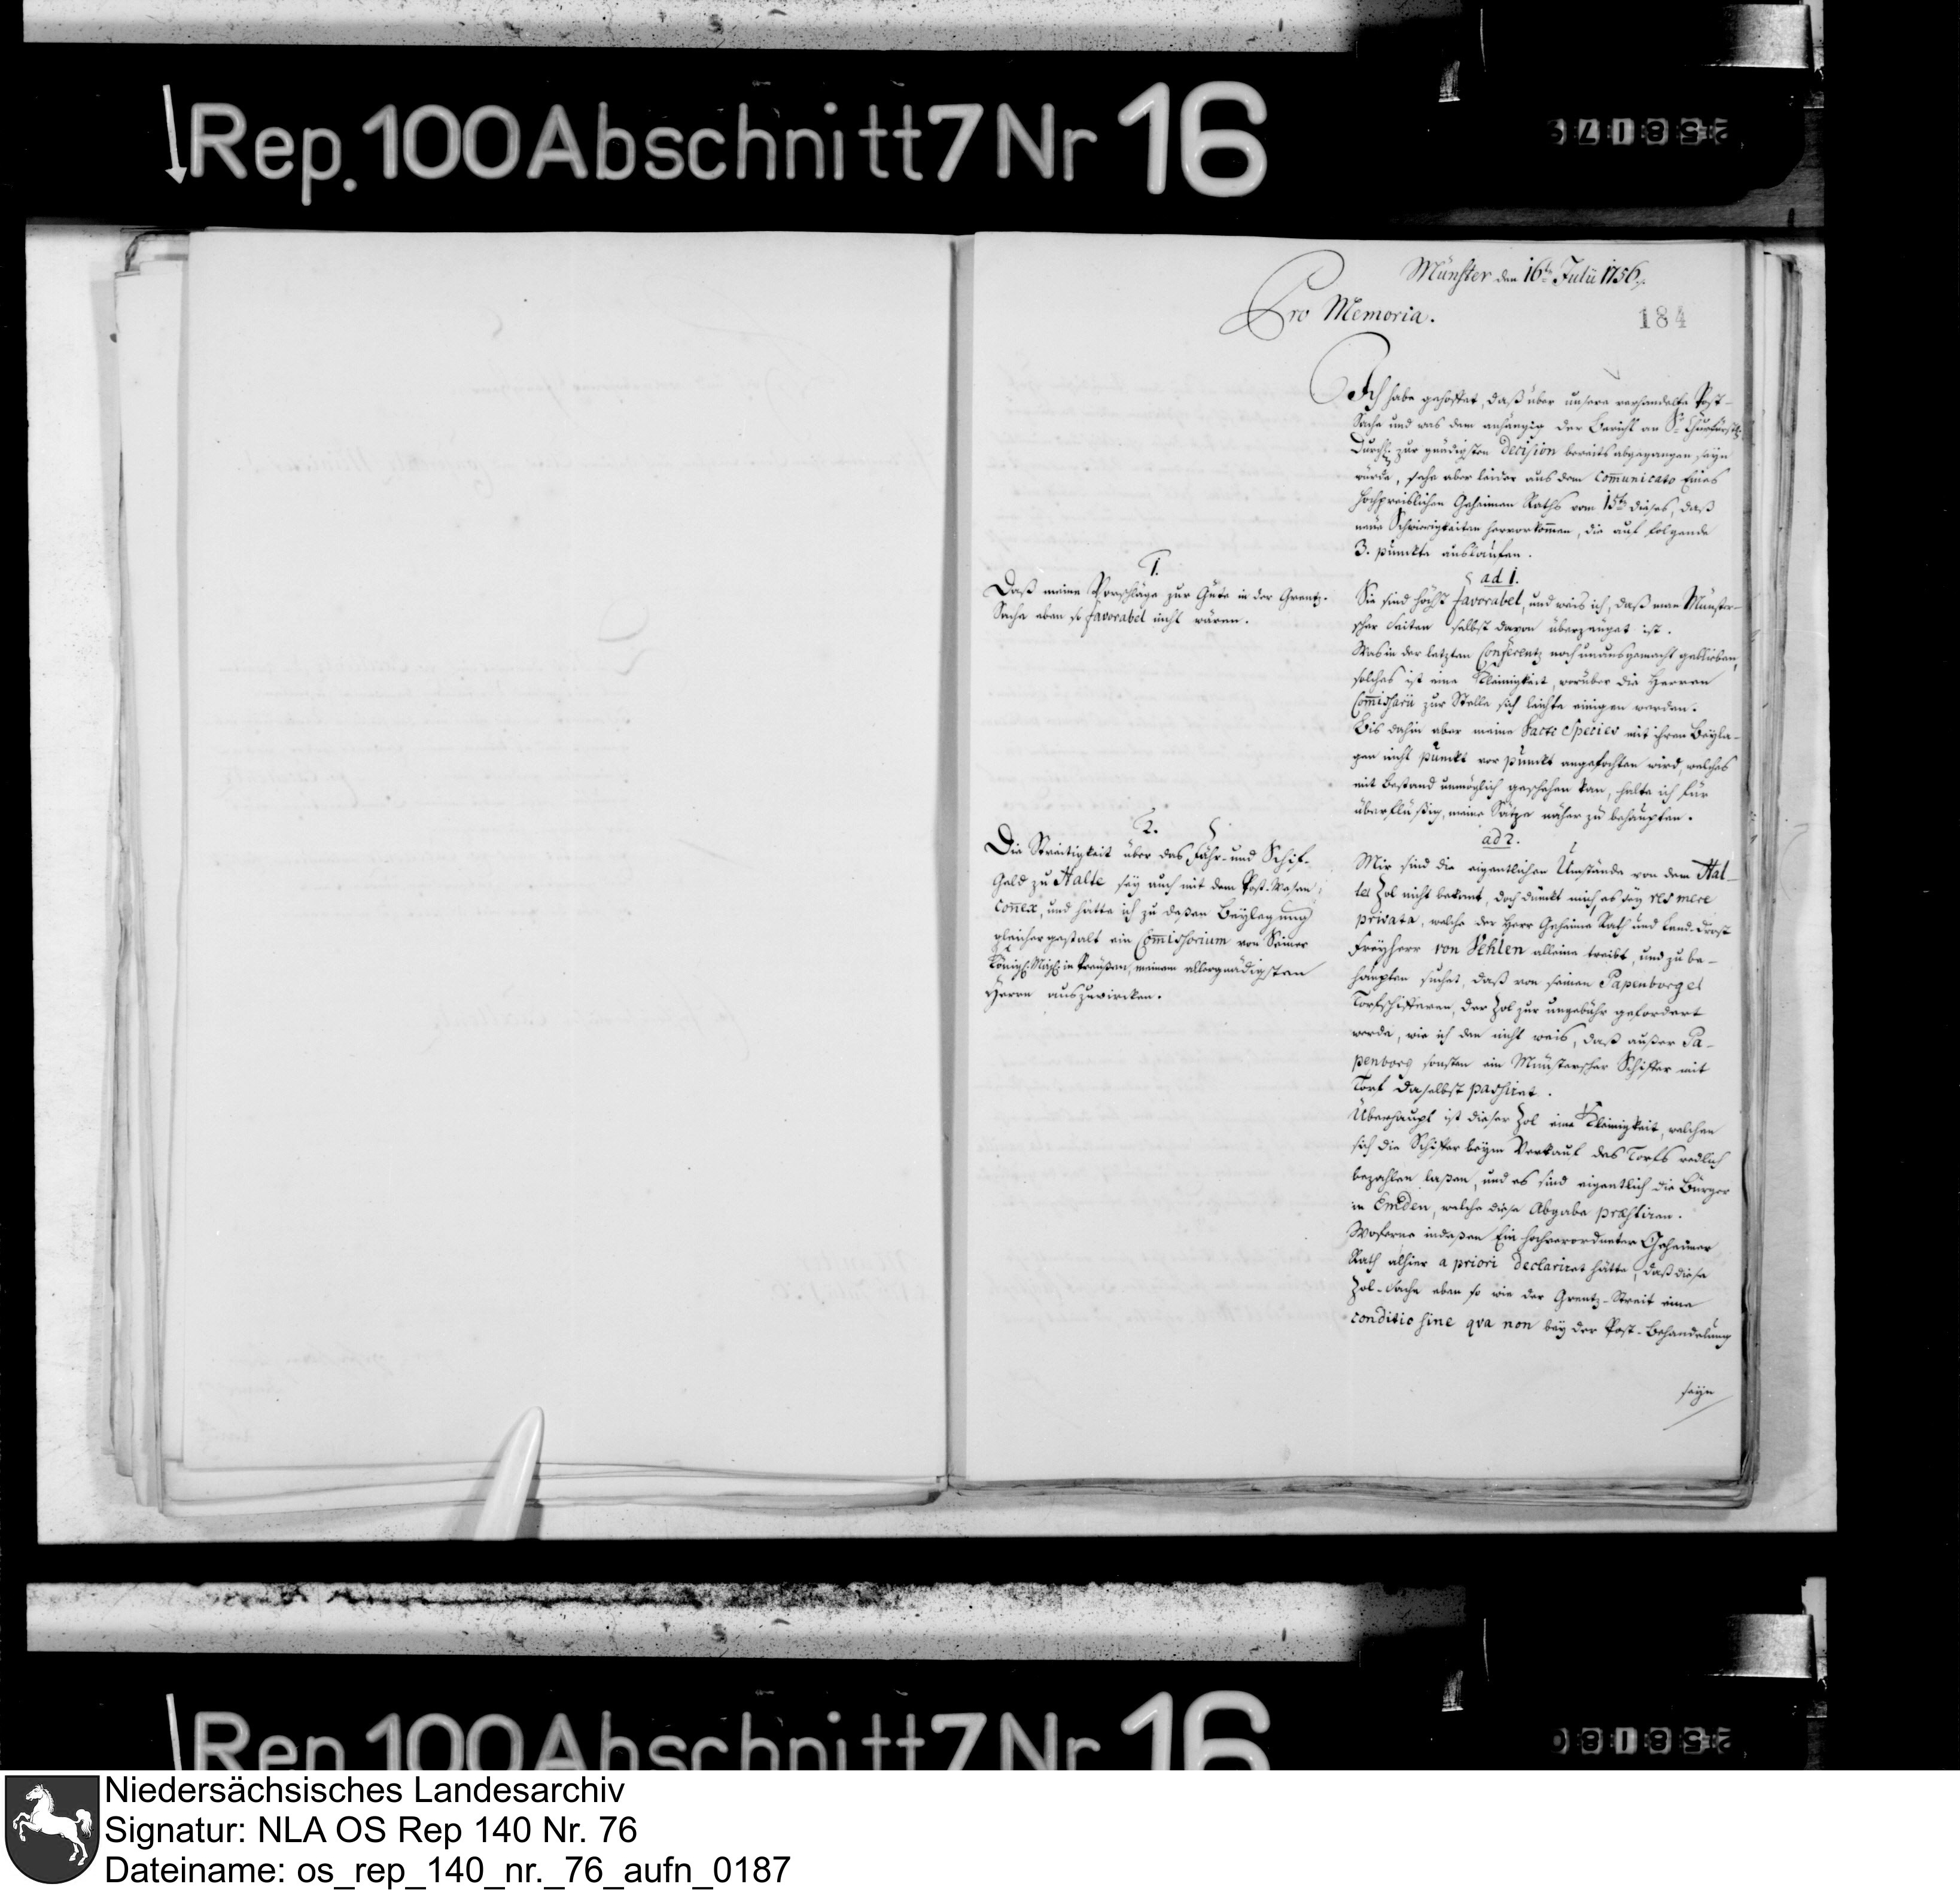 Rep. 100 Abschnitt 7 Nr 16
Münster den 16ten Julii 1756.
Pro Memoria.
184
Ich habe gehoffet, daß über unsere verhandelte Post-
Sache und was dem anhängig der Bericht an Sr. Churfürstl.
Durchl. zur gnädigsten Decision bereits abgegangen seyn
würde, sehe aber leider aus dem Com̄unicato Eines
Hochpreislichen Geheimen Raths vom 15ten dieses, daß
neue Schwierigkeiten hervorkom̄en, die auf folgende
3. puncte auslaufen.
1.
Daß meine Vorschläge zur Güte in der Grentz-
Sache eben so favorabel nicht wären.
ad 1.
Sie sind höchst favorabel, und weis ich, daß man Münster-
scher Seiten selbst davon überzeuget ist.
Was in der letzten Conferentz noch unausgemacht geblieben,
solches ist eine Kleinigkeit, worüber die Herren
Com̄issarii zur Stelle sich leichte einigen werden.
Bis dahin aber meine Facti Species mit ihren Beyla-
gen nicht punckt vor punckt angefochten wird, welches
mit Bestand unmöglich geschehen kan, halte ich für
überflüßig, meine Sätze näher zu behaupten.
2.
Die Streitigkeit über das Fähr- und Schif-
Geld zu Halte sey auch mit dem Post-Wesen
con̄ex, und hätte ich zu deßen Beylegung
gleichergestalt ein Com̄issorium von Seiner
Königl. Maj. in Preußen, meinem allergnädigsten
Herrn auszuwircken.
ad 2.
Mir sind die eigentlichen Umstände von dem Hal-
ter Zol nicht bekant, doch dünckt mich es sey res mere
privata, welche der Herr Geheime Rath und Land-Drost
Freyherr von Vehlen alleine treibt, und zu be-
haupten suchet, daß von seinen Papenborger
Torfschifferen, der Zol zur ungebühr gefordert
werde, wie ich den nicht weis, daß außer Pa-
penborg sonsten ein Münsterscher Schiffer mit
Torf daselbst passiret.
Überhaupt ist dieser Zol eine Kleinigkeit, welchen
sich die Schiffer beym Verkauf des Torfs redlich
bezahlen laßen, und es sind eigentlich die Bürger
in Emden, welche diese Abgabe præstiren.
Woferne indeßen Ein hochverordneter Geheimer
Rath alhier a priori declariret hätte, daß diese
Zol-Sache eben so wie der Grentz-Streit eine
conditio sine qva non bey der Post-Behandelung
seyn
Rep. 100 Abschnitt 7 Nr 16
Niedersächsisches Landesarchiv
Signatur: NLA OS Rep 140 Nr. 76
Dateiname: os_rep_140_nr._76_aufn_0187